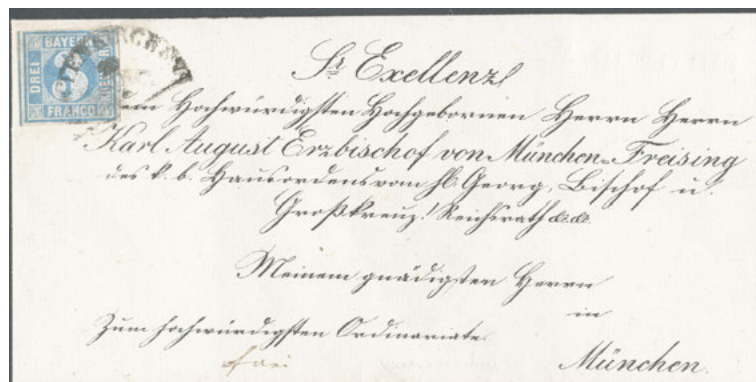 BAYERN
DREI
FRANCO
Sr Exellenz
dem Hochwürdigsten Hochgebornen Herrn Herrn
Karl August Erzbischof von München-Freising
des k. b. Hausordens vom hl. Georg, Bischof u.
Großkreuz! Reichsrath &c. &c.
Meinem gnädigsten Herrn
in
Zum hochwürdigsten Ordinariate.
frei
München.